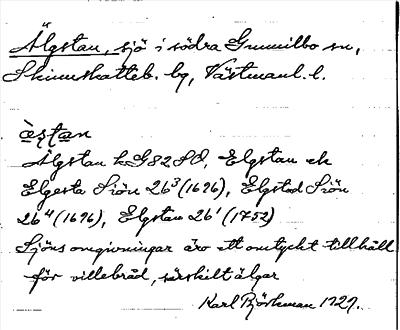 Älgstan, sjö i södra Gunnilbo sn,
Skinnskatteb. hg, Västmanl. l.
Älgstan k G82SO, Elgstan ek
Elgesta Siön 26³ (1696), Elgstad Siön
26⁴ (1696), Elgstan 26¹ (1752)
Sjöns omgivningar äro ett omtyckt tillhåll
för villebråd, särskilt älgar
Karl Björkman 1727.